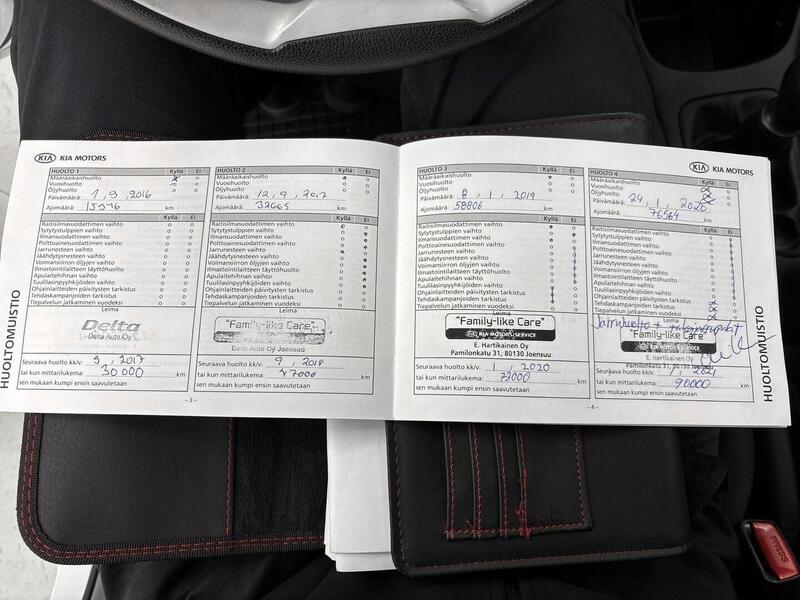 KIA KIA MOTORS
HUOLTO 1 Kyllä Ei
Määräaikaishuolto
Vuosihuolto
Öljyhuolto
Päivämäärä: 1, 9, 2016
Ajomäärä: km
Kyllä Ei
Raitisilmasuodattimen vaihto
Sytytystulppien vaihto
Ilmansuodattimen vaihto
Polttoainesuodattimen vaihto
Jarrunesteen vaihto
Jäähdytysnesteen vaihto
Voimansiirron öljyjen vaihto
Ilmastointilaitteen täyttöhuolto
Apulaitehihnan vaihto
Tuulilasinpyyhkijöiden vaihto
Ohjainlaitteiden päivitysten tarkistus
Tehdaskampanjoiden tarkistus
Tiepalvelun jatkaminen vuodeksi
Leima
Delta
Delta Auto Oy
Seuraava huolto kk/v: 9, 2017
tai kun mittarilukema: 30 000 km
sen mukaan kumpi ensin saavutetaan
HUOLTO 2 Kyllä Ei
Määräaikaishuolto
Vuosihuolto
Öljyhuolto
Päivämäärä: 12, 9, 2017
Ajomäärä: 32665 km
Kyllä Ei
Raitisilmasuodattimen vaihto
Sytytystulppien vaihto
Ilmansuodattimen vaihto
Polttoainesuodattimen vaihto
Jarrunesteen vaihto
Jäähdytysnesteen vaihto
Voimansiirron öljyjen vaihto
Ilmastointilaitteen täyttöhuolto
Apulaitehihnan vaihto
Tuulilasinpyyhkijöiden vaihto
Ohjainlaitteiden päivitysten tarkistus
Tehdaskampanjoiden tarkistus
Tiepalvelun jatkaminen vuodeksi
Leima
"Family-like Care"
Delta Auto Oy Joensuu
Seuraava huolto kk/v: 9 2018
tai kun mittarilukema: 47000 km
sen mukaan kumpi ensin saavutetaan
HUOLTOMUISTIO
- 3 -
HUOLTO 3 Kyllä Ei
Määräaikaishuolto
Vuosihuolto
Öljyhuolto
Päivämäärä: 8, 1, 2019
Ajomäärä: 58806 km
Kyllä Ei
Raitisilmasuodattimen vaihto
Sytytystulppien vaihto
Ilmansuodattimen vaihto
Polttoainesuodattimen vaihto
Jarrunesteen vaihto
Jäähdytysnesteen vaihto
Voimansiirron öljyjen vaihto
Ilmastointilaitteen täyttöhuolto
Apulaitehihnan vaihto
Tuulilasinpyyhkijöiden vaihto
Ohjainlaitteiden päivitysten tarkistus
Tehdaskampanjoiden tarkistus
Tiepalvelun jatkaminen vuodeksi
Leima
"Family-like Care"
KIA KIA MOTORS SERVICE
E. Hartikainen Oy
Pamilonkatu 31, 80130 Joensuu
Seuraava huolto kk/v: 1, 2020
tai kun mittarilukema: 73000 km
sen mukaan kumpi ensin saavutetaan
KIA KIA MOTORS
HUOLTO 4 Kyllä Ei
Määräaikaishuolto
Vuosihuolto
Öljyhuolto
Päivämäärä: 24, 1, 2020
Ajomäärä: 76564 km
Kyllä Ei
Raitisilmasuodattimen vaihto
Sytytystulppien vaihto
Ilmansuodattimen vaihto
Polttoainesuodattimen vaihto
Jarrunesteen vaihto
Jäähdytysnesteen vaihto
Voimansiirron öljyjen vaihto
Ilmastointilaitteen täyttöhuolto
Apulaitehihnan vaihto
Tuulilasinpyyhkijöiden vaihto
Ohjainlaitteiden päivitysten tarkistus
Tehdaskampanjoiden tarkistus
Tiepalvelun jatkaminen vuodeksi
Leima
Jarruhuolto +
"Family-like Care"
KIA MOTORS SERVICE
E. Hartikainen Oy
Pamilonkatu 31, 80130 Joensuu
Seuraava huolto kk/v: 1, 2021
tai kun mittarilukema: 90000 km
sen mukaan kumpi ensin saavutetaan
HUOLTOMUISTIO
- 4 -
PRESS